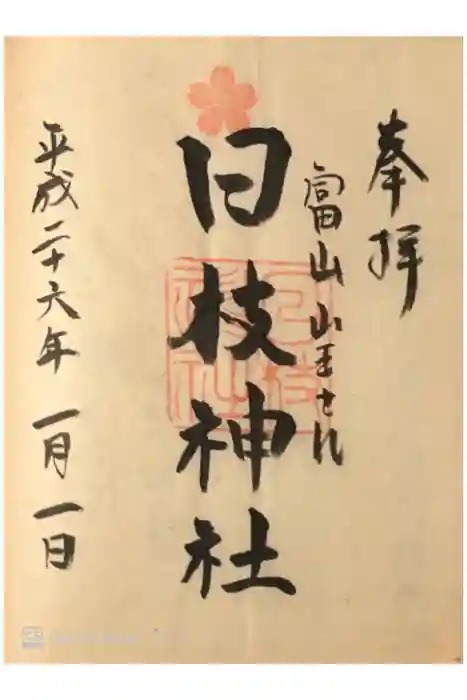 奉拝
富山山王さん
日枝神社
平成二十六年 一月一日